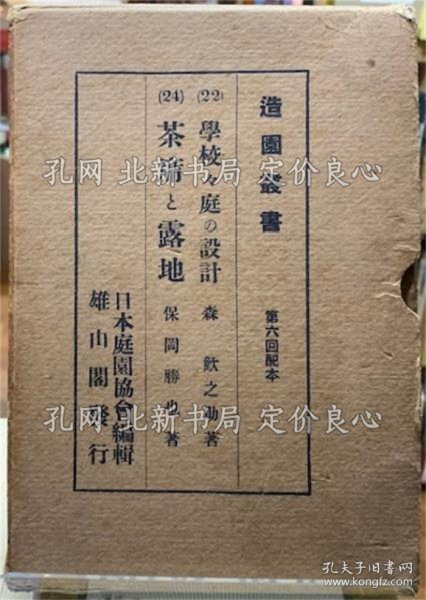 造園叢書
第六回配本
(22)
學校々庭の設計
森歓之助著
(24)
茶席と露地
保岡勝也著
日本庭園協會編輯
雄山閣發行
孔网 北新书局 定价良心
孔网 北新书局 定价良心
孔夫子旧书网
www.kongfz.com